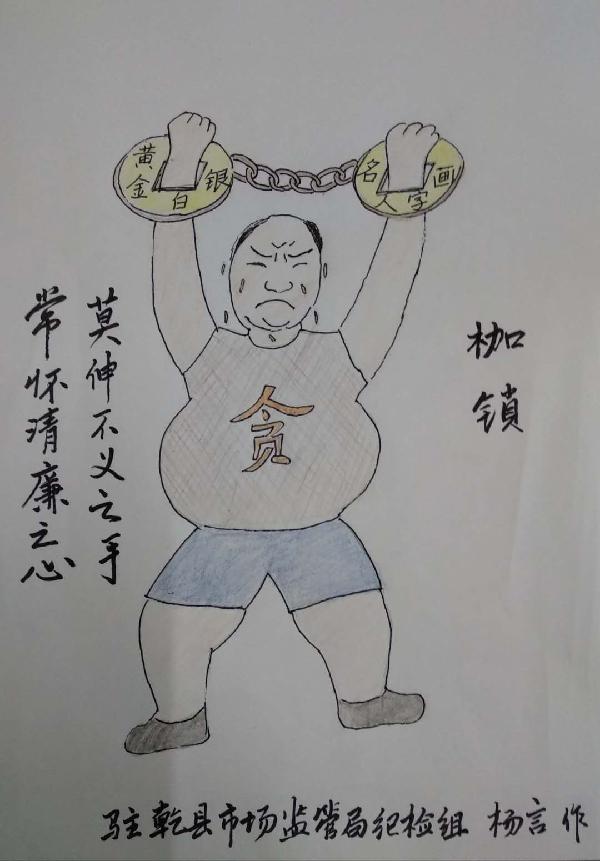 黄金白银
名人字画
枷锁
莫伸不义之手
常怀清廉之心
贪
驻乾县市场监管局纪检组 杨言 作